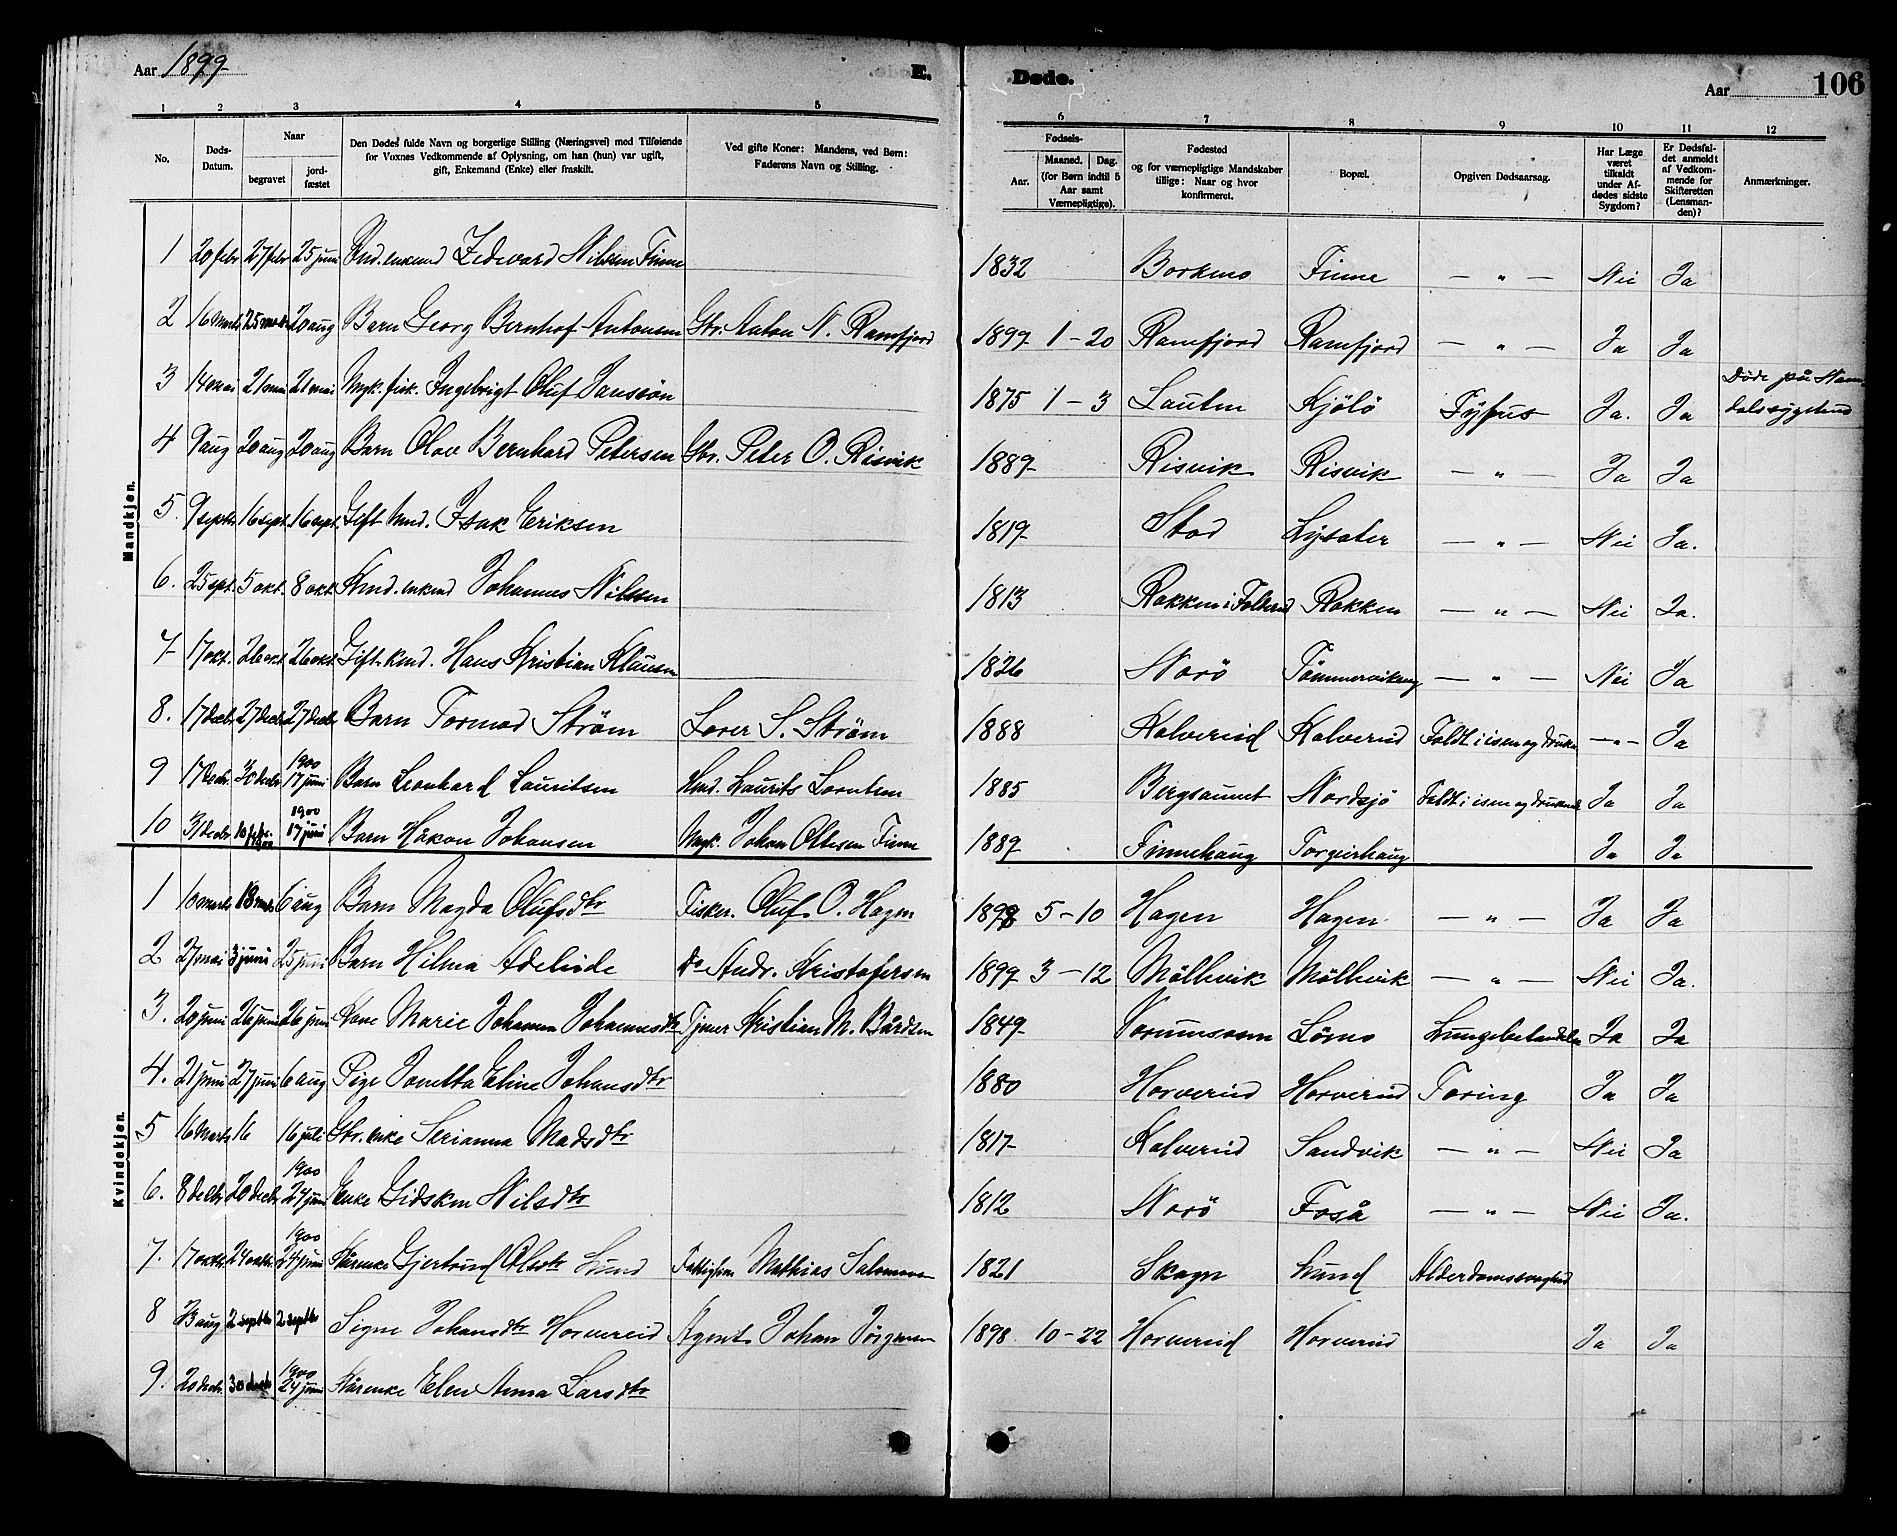 Aar 1899 E. Døde. Aar 106
1 2 3 4 5 6 7 8 9 10 11 12
No. Døds-Datum. Naar begravet jord-fæstet Den Dødes fulde Navn og borgerlige Stilling (Næringsvei) med Tilføiende for Voxnes Vedkommende af Oplysning, om han (hun) var ugift, gift, Enkemand (Enke) eller fraskilt. Ved gifte Koner: Mandens, ved Børn: Faderens Navn og Stilling. Fødsels- Aar. Maaned. Dag. (for Børn indtil 5 Aar samt Værnepligtige). Fødested og for værnepligtige Mandskaber tillige: Naar og hvor konfirmeret. Bopæl. Opgiven Dødsaarsag. Har Læge været tilkaldt under Afdødes sidste Sygdom? Er Dødsfaldet anmeldt af Vedkommende for Skifteretten (Lensmanden)? Anmærkninger.
Mandkjøn.
1 20 febr 27 febr 25 juni Edevard Nilssen Finne 1832 Borkmo Finne — " — Nei Ja
2 16 Marts 25 marts 20 aug Barn Georg Bernhof Antonsen Gbr. Anton N. Ramfjord 1899 1 - 20 Ramfjord Ramfjord — " — Ja Ja
3 14 mai 21 mai 21 mai Ungk. fisk. Ingebrigt Oluf Jansson 1875 1 - 3 Kjölö Tyfus Ja. Ja Døde på Namdalssygehus
4 9 aug 20 aug 20 aug Barn Olav Bernhard Petersen Gbr. Peter O. Risvik 1889 Risvik Risvik — " — Ja Ja
5. 9 septr. 16 sept. 16 sept. Gift kmd. Isak Eriksen 1819 Stod Lysøter — " — Nei Ja.
6. 25 sept. 5 okt. 8 okt. Kmd. enkmd Johannes Nilssen 1813 Rokken i Foldereid Rokken — " — Nei Ja.
7 17 okt. 26 okt. 26 okt. Gift kmd. Hans Kristian Klausen 1826 Norö Tømmervikeng — " — Nei Ja
8. 17 decbr. 27 decbr 27 decbr Barn Tormod Strøm Lærer S. Strøm 1888 Kolvereid Kolvereid Faldt i isen og drukn — " — Ja
9 17 decbr. 30 decbr 1900 17 juni Barn Leonhard Lauritsen Kmd. Laurits Lorntsen 1885 Bergsaunet Nordsjö Faldt i isen og druknede Ja Ja
10 31 decbr 10 febr. 1900 1900 17 juni Barn Håkon Johansen Ungk. Johan Ottesen Finne 1889 Finnehaug Torgeirhaug Ja Ja
Kvindekjøn.
1 10 marts 18 mrts 6 aug Barn Magda Olufsdtr Fisker. Oluf O. Hagen 1898 5 - 10 Hagen Hagen — " — Ja Ja
2 27 mai 3 juni 25 juni Barn Hilma Adeleide Do Andr. Kristofersen 1899 3 - 12 Möllevik Möllevik — " — Nei Ja.
3. 20 juni 26 juni 26 juni Kone Marie Johanna Johannesdtr Tjener Kristian M. Bårdsen 1849 Lörmo Lungebetændelse Ja Ja
4. 21 juni 27 juni 6 aug Pige Jonetta Eline Johansdtr 1880 Horvereid Horvereid Tæring Ja Ja
5 16 Marts 16 16 juli Gbr. enke Serianna Madsdtr 1817 Kolvereid Sandvik — " — Nei Ja
6. 8 decbr 20 decbr 1900 24 juni Enke Gidsken Nilsdtr 1812 Norö Foså — " — Nei Ja.
7. 17 oktbr 24 oktbr. 1900 24 juni Kårenke Gjertrud Olsdtr Lund Fattiglem Mathias Salomonsen 1821 Skogn Lund Alderdomssvaghed
8 23 aug 2 septbr 2 septbr Signe Johansdtr Horvereid Agent Johan Jörgensen 1898 10 - 22 Horvereid Horvereid Ja Ja
9. 20 decbr. 30 decbr 1900 24 juni Kårenke Elen Anna Larsdtr